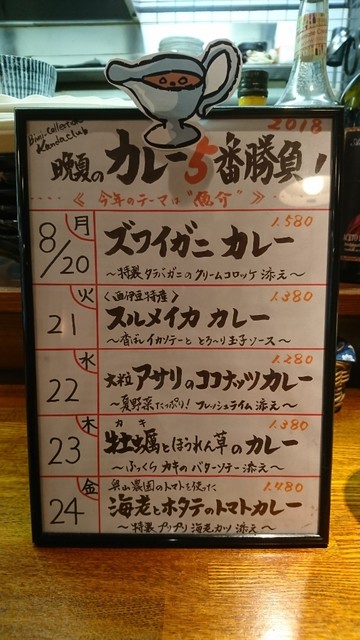 Bimi-Collection
Kanda Club
2018
晩夏のカレー5番勝負!
《今年のテーマは"魚介"》
8/20 月 1.580
ズワイガニカレー
〜特製タラバガニのクリームコロッケ添え〜
21 火 〈西伊豆特産〉 1.380
スルメイカカレー
〜香ばしイカソテーととろ〜り玉子ソース〜
22 水 1.280
大粒アサリのココナッツカレー
〜夏野菜たっぷり!フレッシュライム添え〜
23 木 カキ 1.380
牡蠣とほうれん草のカレー
〜ふっくらカキのバターソテー添え〜
24 金 奥山農園のトマトを使った 1.480
海老とホタテのトマトカレー
〜特製プリプリ海老カツ添え〜